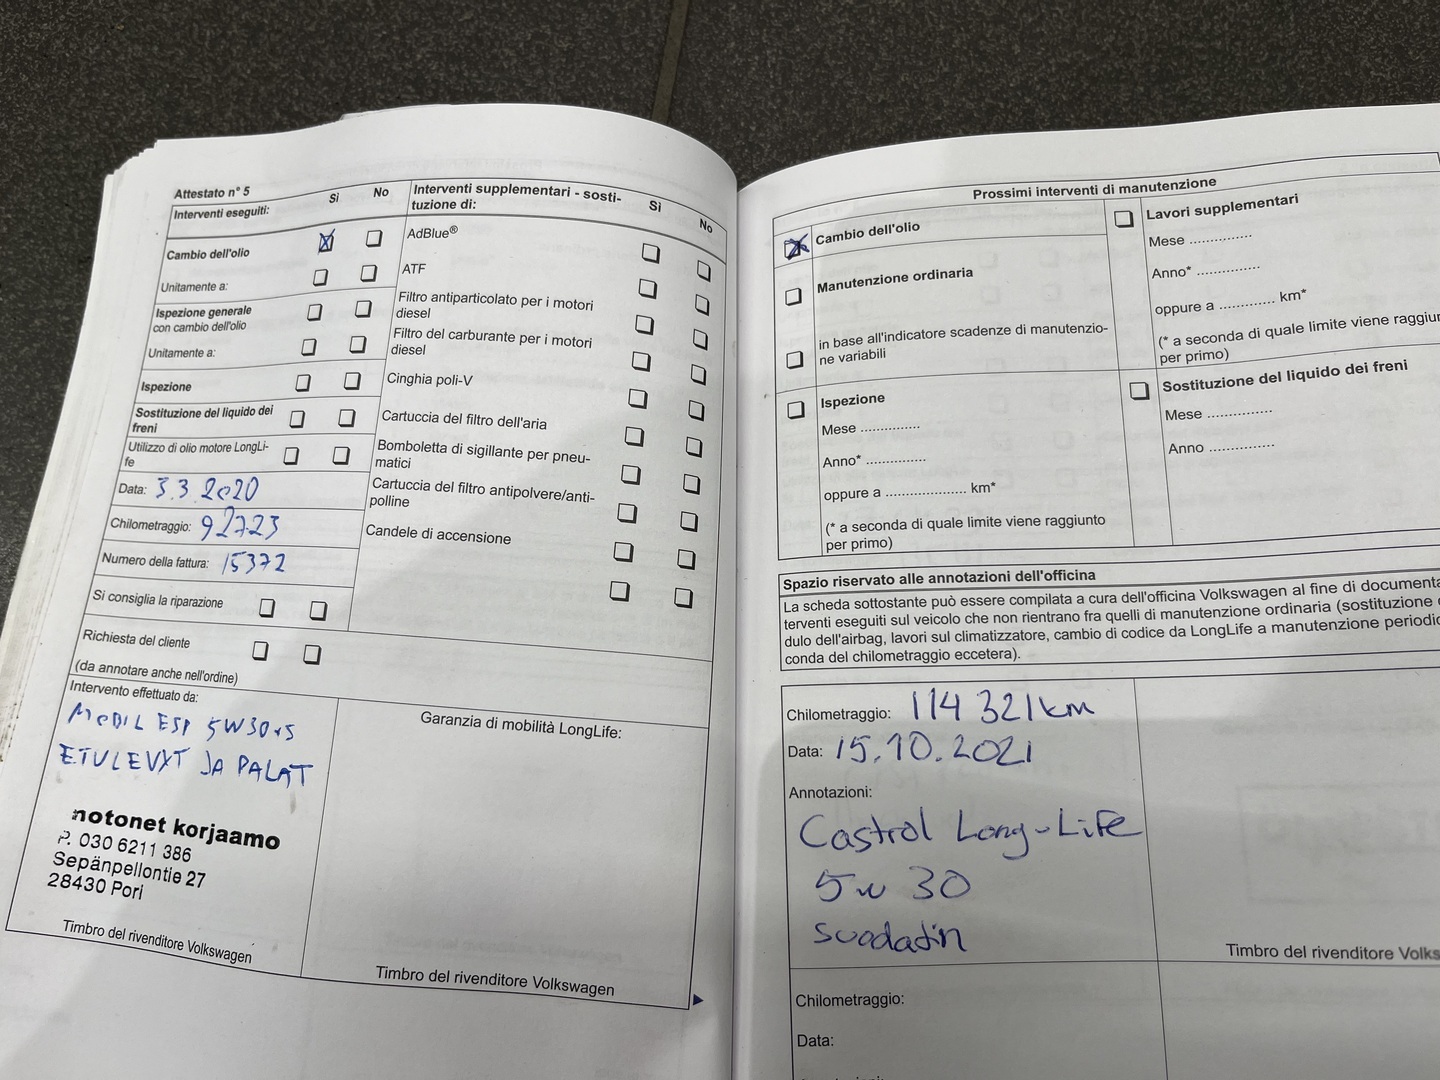 Attestato n° 5
Interventi eseguiti:
Sì
No
Cambio dell'olio
Unitamente a:
Ispezione generale
con cambio dell'olio
Unitamente a:
Ispezione
Sostituzione del liquido dei
freni
Utilizzo di olio motore LongLi-
fe
Data: 3.3.2020
Chilometraggio: 92723
Numero della fattura: 15372
Si consiglia la riparazione
Richiesta del cliente
(da annotare anche nell'ordine)
Intervento effettuato da:
MOBIL ESP 5W30
ETULEVYT JA PALAT
motonet korjaamo
P. 030 6211 386
Sepänpellontie 27
28430 Pori
Timbro del rivenditore Volkswagen
Interventi supplementari - sosti-
tuzione di:
Sì
No
AdBlue®
ATF
Filtro antiparticolato per i motori
diesel
Filtro del carburante per i motori
diesel
Cinghia poli-V
Cartuccia del filtro dell'aria
Bomboletta di sigillante per pneu-
matici
Cartuccia del filtro antipolvere/anti-
polline
Candele di accensione
Garanzia di mobilità LongLife:
Timbro del rivenditore Volkswagen
Prossimi interventi di manutenzione
Cambio dell'olio
Manutenzione ordinaria
in base all'indicatore scadenze di manutenzio-
ne variabili
Ispezione
Mese ...............
Anno* ...............
oppure a .................... km*
(* a seconda di quale limite viene raggiunto
per primo)
Lavori supplementari
Mese ...............
Anno* ...............
oppure a ............ km*
(* a seconda di quale limite viene raggiun
per primo)
Sostituzione del liquido dei freni
Mese ...............
Anno ...............
Spazio riservato alle annotazioni dell'officina
La scheda sottostante può essere compilata a cura dell'officina Volkswagen al fine di documenta
terventi eseguiti sul veicolo che non rientrano fra quelli di manutenzione ordinaria (sostituzione
dulo dell'airbag, lavori sul climatizzatore, cambio di codice da LongLife a manutenzione periodic
conda del chilometraggio eccetera).
Chilometraggio: 114 321 km
Data: 15.10.2021
Annotazioni:
Castrol Long-Life
5w 30
suodatin
Timbro del rivenditore Volks
Chilometraggio:
Data: